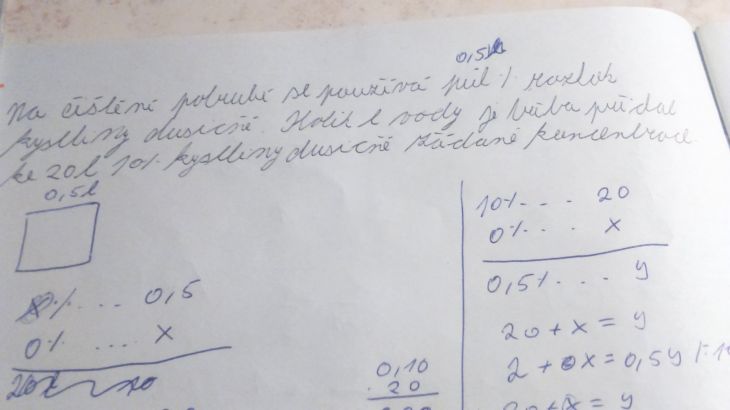 0,5%
Na čištění potrubí se používá půl % roztok
kyseliny dusičné. Kolik l vody je třeba přidat
ke 20l 10% kyseliny dusičné žádané koncentrace.
0,5l
% .... 0,5
0% .... x
10% .... 20
0% .... x
0,5% .... y
20 + x = y
2 + 0x = 0,5y /·10
20+x = y
0,10
· 20